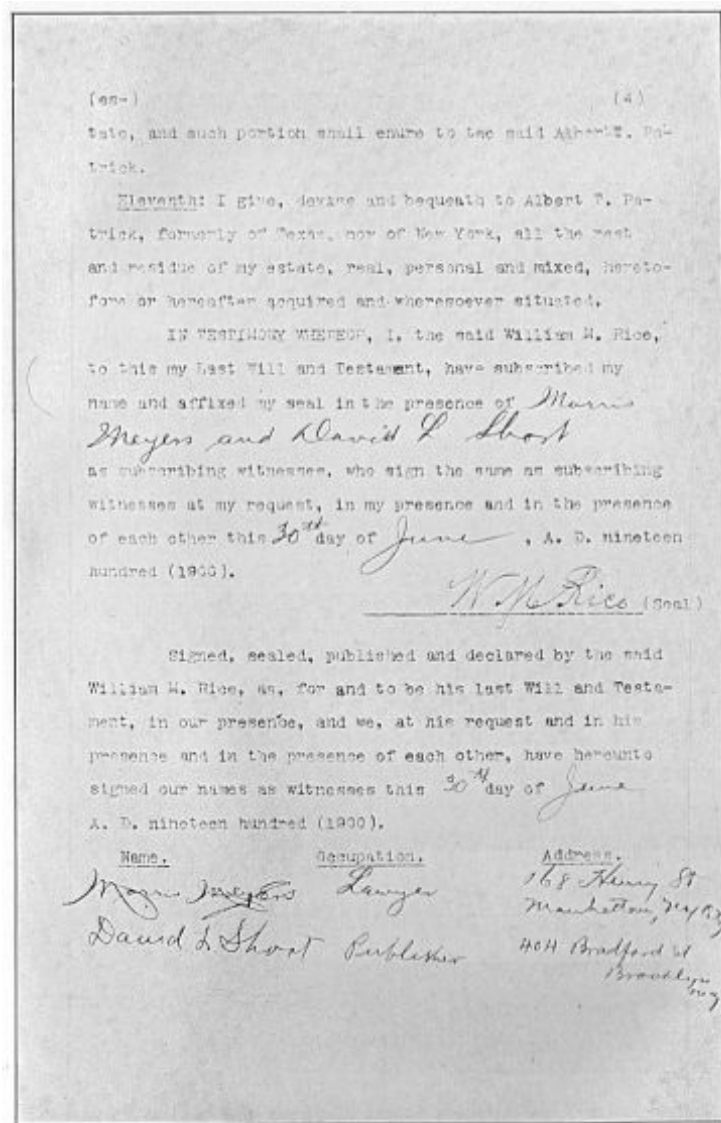 (es-) (4)
tate, and such portion shall enure to the said Albert T. Pa-
trick.
Eleventh: I give, devise and bequeath to Albert T. Pa-
trick, formerly of Texas, now of New York, all the rest
and residue of my estate, real, personal and mixed, hereto-
fore or hereafter acquired and wheresoever situated.
IN TESTIMONY WHEREOF, I, the said William M. Rice,
to this my Last Will and Testament, have subscribed my
name and affixed my seal in the presence of Morris
Meyers and David L. Short
as subscribing witnesses, who sign the same as subscribing
witnesses at my request, in my presence and in the presence
of each other this 30th day of June, A. D. nineteen
hundred (1900).
W M Rice (Seal)
Signed, sealed, published and declared by the said
William M. Rice, as, for and to be his last Will and Testa-
ment, in our presence, and we, at his request and in his
presence and in the presence of each other, have hereunto
signed our names as witnesses this 30th day of June
A. D. nineteen hundred (1900).
Name. Occupation. Address.
Morris Meyers Lawyer 168 Henry St
Manhattan, NY
David L. Short Publisher 404 Bradford St
Brooklyn
NY